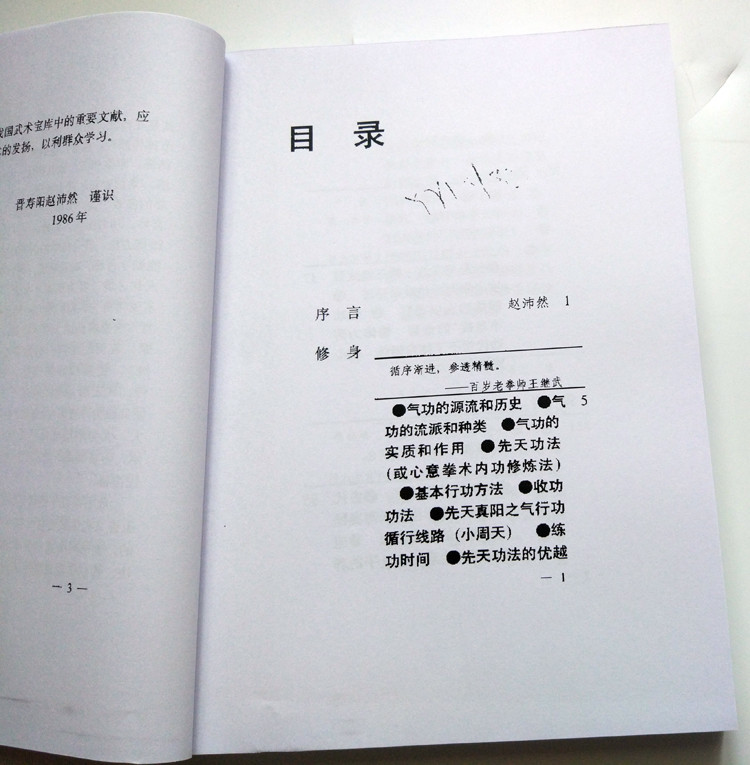 我国武术宝库中的重要文献，应
的发扬，以利群众学习。
晋寿阳赵沛然 谨识
1986年
— 3 —
目 录
序 言 赵沛然 1
修 身
循序渐进，参透精髓。
——百岁老拳师王继武
●气功的源流和历史 ●气 5
功的流派和种类 ●气功的
实质和作用 ●先天功法
(或心意拳术内功修炼法)
●基本行功方法 ●收功
功法 ●先天真阳之气行功
循行线路（小周天） ●练
功时间 ●先天功法的优越
— 1